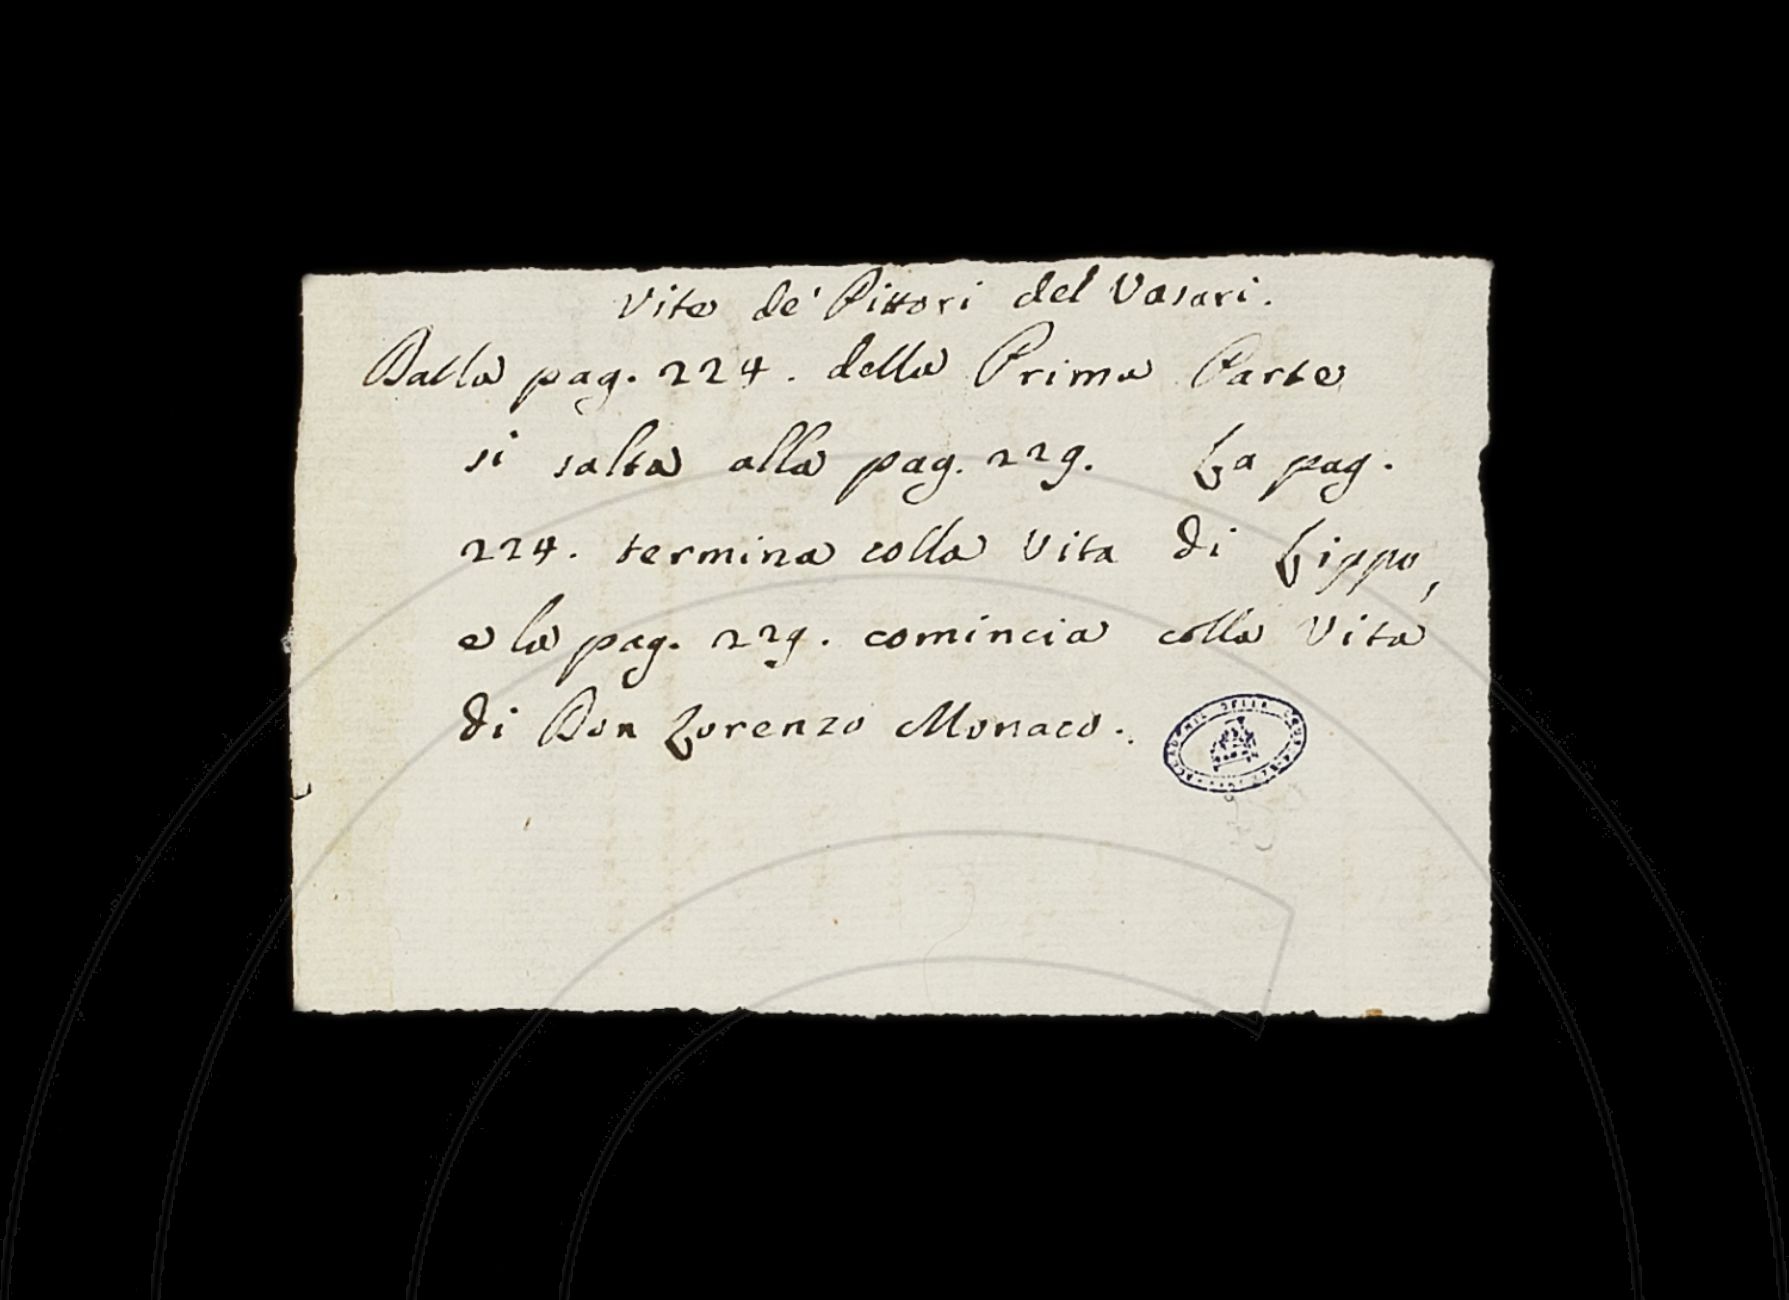 Vite de' Pittori del Vasari.
Dalla pag. 224. della Prima Parte
si salta alla pag. 229. La pag.
224. termina colla Vita di Lippo,
e la pag. 229. comincia colla Vita
di Don Lorenzo Monaco.
ACCADEMIA DELLA CRUSCA